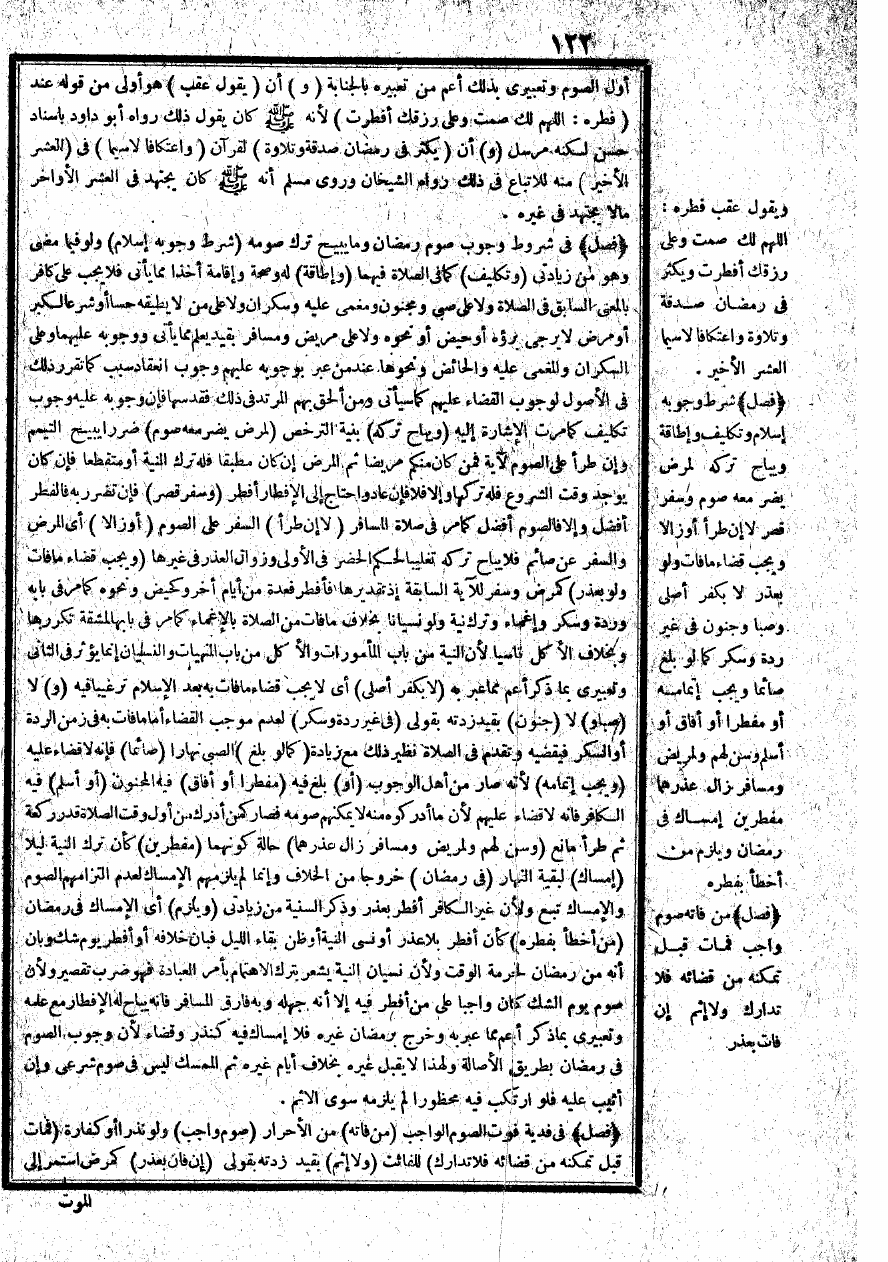 ١٢٢
أول الصوم وتعبيرى بذلك أعم من تعبيره بالجنابة ( و ) أن ( يقول عقب ) هو أولى من قوله عند
( فطره : اللهم لك صمت وعلى رزقك أفطرت ) لأنه ﷺ كان يقول ذلك رواه أبو داود باسناد
حسن لكنه مرسل (و) أن ( يكثر فى رمضان صدقة وتلاوة ) لقرآن ( واعتكافا لاسيما ) فى (العشر
الأخير ) منه للاتباع فى ذلك رواه الشيخان وروى مسلم أنه ﷺ كان يجتهد فى العشر الأواخر
مالا يجتهد فى غيره .
﴿فصل﴾ فى شروط وجوب صوم رمضان وما يبيح ترك صومه (شرط وجوبه إسلام) ولو فيما مضى
وهو من زيادتى (وتكليف) كما فى الصلاة فيهما (وإطاقة) له وصحة وإقامة أخذا مما يأتى فلا يجب على كافر
بالمعنى السابق فى الصلاة ولا على صبى ومجنون ومغمى عليه وسكران ولا على من لا يطيقه حسا أو شرعا لكبر
أو مرض لا يرجى برؤه أو حيض أو نحوه ولا على مريض ومسافر بقيد يعلم مما يأتى ووجوبه عليهما وعلى
السكران والمغمى عليه والحائض ونحوها عند من عبر بوجوبه عليهم وجوب انعقاد سبب كما تقرر ذلك
فى الأصول لوجوب القضاء عليهم كما سيأتى ومن ألحق بهم المرتد فى ذلك فقد سها فإن وجوبه عليه وجوب
تكليف كما مرت الإشارة إليه (ويباح تركه) بنية الترخص (لمرض يضر معه صوم) ضررا يبيح التيمم
وإن طرأ على الصوم لآية فمن كان منكم مريضا ثم المرض إن كان مطبقا فله ترك النية أو متقطعا فإن كان
يوجد وقت الشروع فله تركها وإلا فلا فإن عاد واحتاج إلى الإفطار أفطر (وسفر قصر) فإن تضرر به فالفطر
أفضل وإلا فالصوم أفضل كما مر فى صلاة المسافر ( لا إن طرأ ) السفر على الصوم ( أو زالا ) أى المرض
والسفر عن صائم فلا يباح تركه تغليبا لحكم الحضر فى الأولى وزوال العذر فى غيرها (ويجب قضاء ما فات
ولو بعذر) كمرض وسفر للآية السابقة إذ تقديرها فأفطر فعدة من أيام أخر وكحيض ونحوه كما مر فى بابه
وردة وسكر وإغماء وترك نية ولو نسيانا بخلاف ما فات من الصلاة بالإغماء كما مر فى بابها لمشقة تكررها
وبخلاف الأكل ناسيا لأن النية من باب المأمورات والأكل من باب المنهيات والنسيان إنما يؤثر فى الثانى
وتعبيرى بما ذكر أعم مما عبر به (لا بكفر أصلى) أى لا يجب قضاء ما فات به بعد الإسلام ترغيبا فيه (و) لا
(صبا و) لا (جنون) بقيد زدته بقولى (فى غير ردة وسكر) لعدم موجب القضاء أما ما فات به فى زمن الردة
أو السكر فيقضيه وتقدم فى الصلاة نظير ذلك مع زيادة (كما لو بلغ ) الصبى نهارا (صائما) فإنه لا قضاء عليه
(ويجب إتمامه) لأنه صار من أهل الوجوب (أو) بلغ فيه (مفطرا أو أفاق) فيه المجنون (أو أسلم) فيه
الكافر فانه لا قضاء عليهم لأن ما أدركوه منه لا يمكنهم صومه فصار كمن أدرك من أول وقت الصلاة قدر ركعة
ثم طرأ مانع (وسن لهم ولمريض ومسافر زال عذرهما) حالة كونهما (مفطرين) كأن ترك النية ليلا
(إمساك) لبقية النهار (فى رمضان ) خروجا من الخلاف وإنما لم يلزمهم الإمساك لعدم التزامهم الصوم
والإمساك تبع ولأن غير الكافر أفطر بعذر وذكر السنية من زيادتى (ويلزم) أى الإمساك فى رمضان
(من أخطأ بفطره) كأن أفطر بلا عذر أو نسى النية أو ظن بقاء الليل فبان خلافه أو أفطر يوم شك وبان
أنه من رمضان لحرمة الوقت ولأن نسيان النية يشعر بترك الاهتمام بأمر العبادة فهو ضرب تقصير ولأن
صوم يوم الشك كان واجبا على من أفطر فيه إلا أنه جهله وبه فارق المسافر فانه يباح له الإفطار مع علمه
وتعبيرى بما ذكر أعم مما عبر به وخرج برمضان غيره فلا إمساك فيه كنذر وقضاء لأن وجوب الصوم
فى رمضان بطريق الأصالة ولهذا لا يقبل غيره بخلاف أيام غيره ثم الممسك ليس فى صوم شرعى وإن
أثيب عليه فلو ارتكب فيه محظورا لم يلزمه سوى الاثم .
﴿فصل﴾ فى فدية فوت الصوم الواجب (من فاته) من الأحرار (صوم واجب) ولو نذرا أو كفارة (فمات
قبل تمكنه من قضائه فلا تدارك) للفائت (ولا إثم) بقيد زدته بقولى (إن فات بعذر) كمرض استمر إلى
الموت
ويقول عقب فطره :
اللهم لك صمت وعلى
رزقك أفطرت ويكثر
فى رمضان صدقة
وتلاوة واعتكافا لاسيما
العشر الأخير .
﴿فصل﴾ شرط وجوبه
إسلام وتكليف وإطاقة
ويباح تركه لمرض
يضر معه صوم وسفر
قصر لا إن طرأ أو زالا
ويجب قضاء ما فات ولو
بعذر لا بكفر أصلى
وصبا وجنون فى غير
ردة وسكر كما لو بلغ
صائما ويجب إتمامه
أو مفطرا أو أفاق أو
أسلم وسن لهم ولمريض
ومسافر زال عذرهما
مفطرين إمساك فى
رمضان ويلزم من
أخطأ بفطره
﴿فصل﴾ من فاته صوم
واجب فمات قبل
تمكنه من قضائه فلا
تدارك ولا إثم إن
فات بعذر